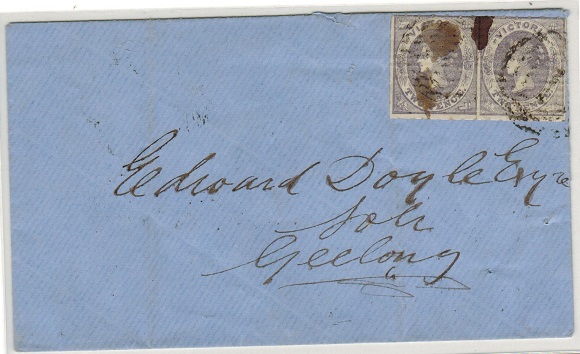 VICTORIA VICTORIA
TWO PENCE
Edward Doyle Esqre
Solr
Geelong